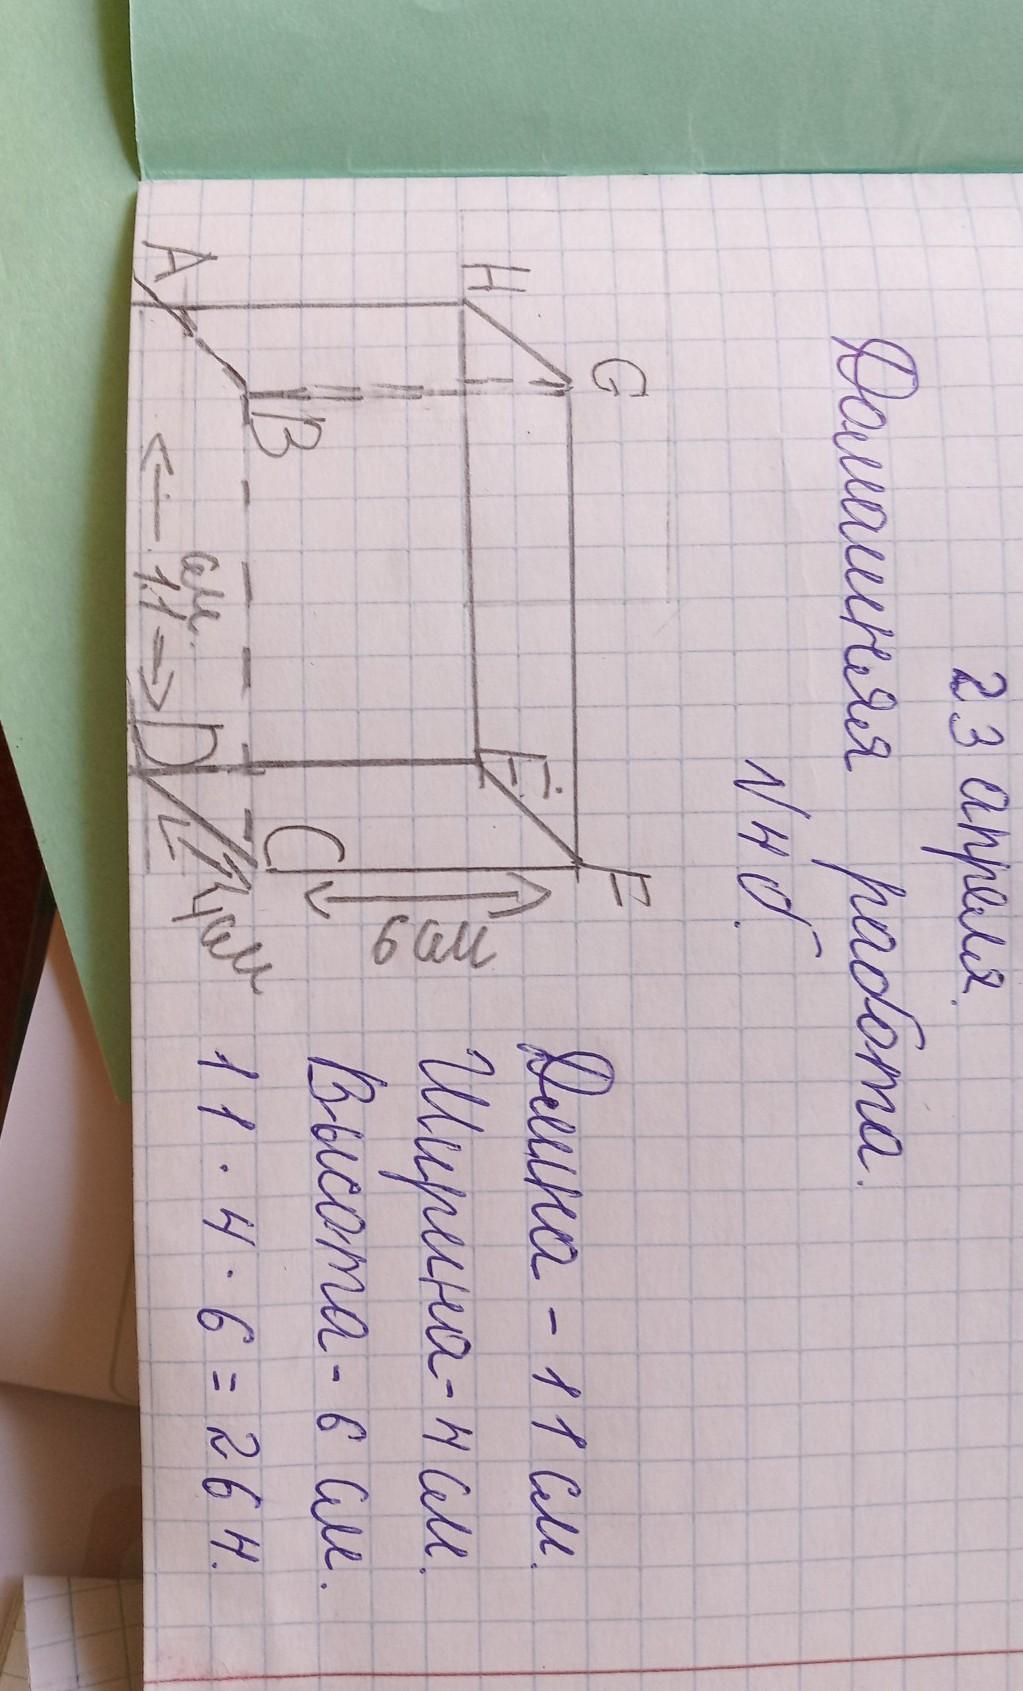 23 апреля.
Домашняя работа.
N 4 б.
G
F
H
E
6 см
B
C
A
см.
11
D
4 см
Длина - 11 см.
Ширина - 4 см.
Высота - 6 см.
11 · 4 · 6 = 264.